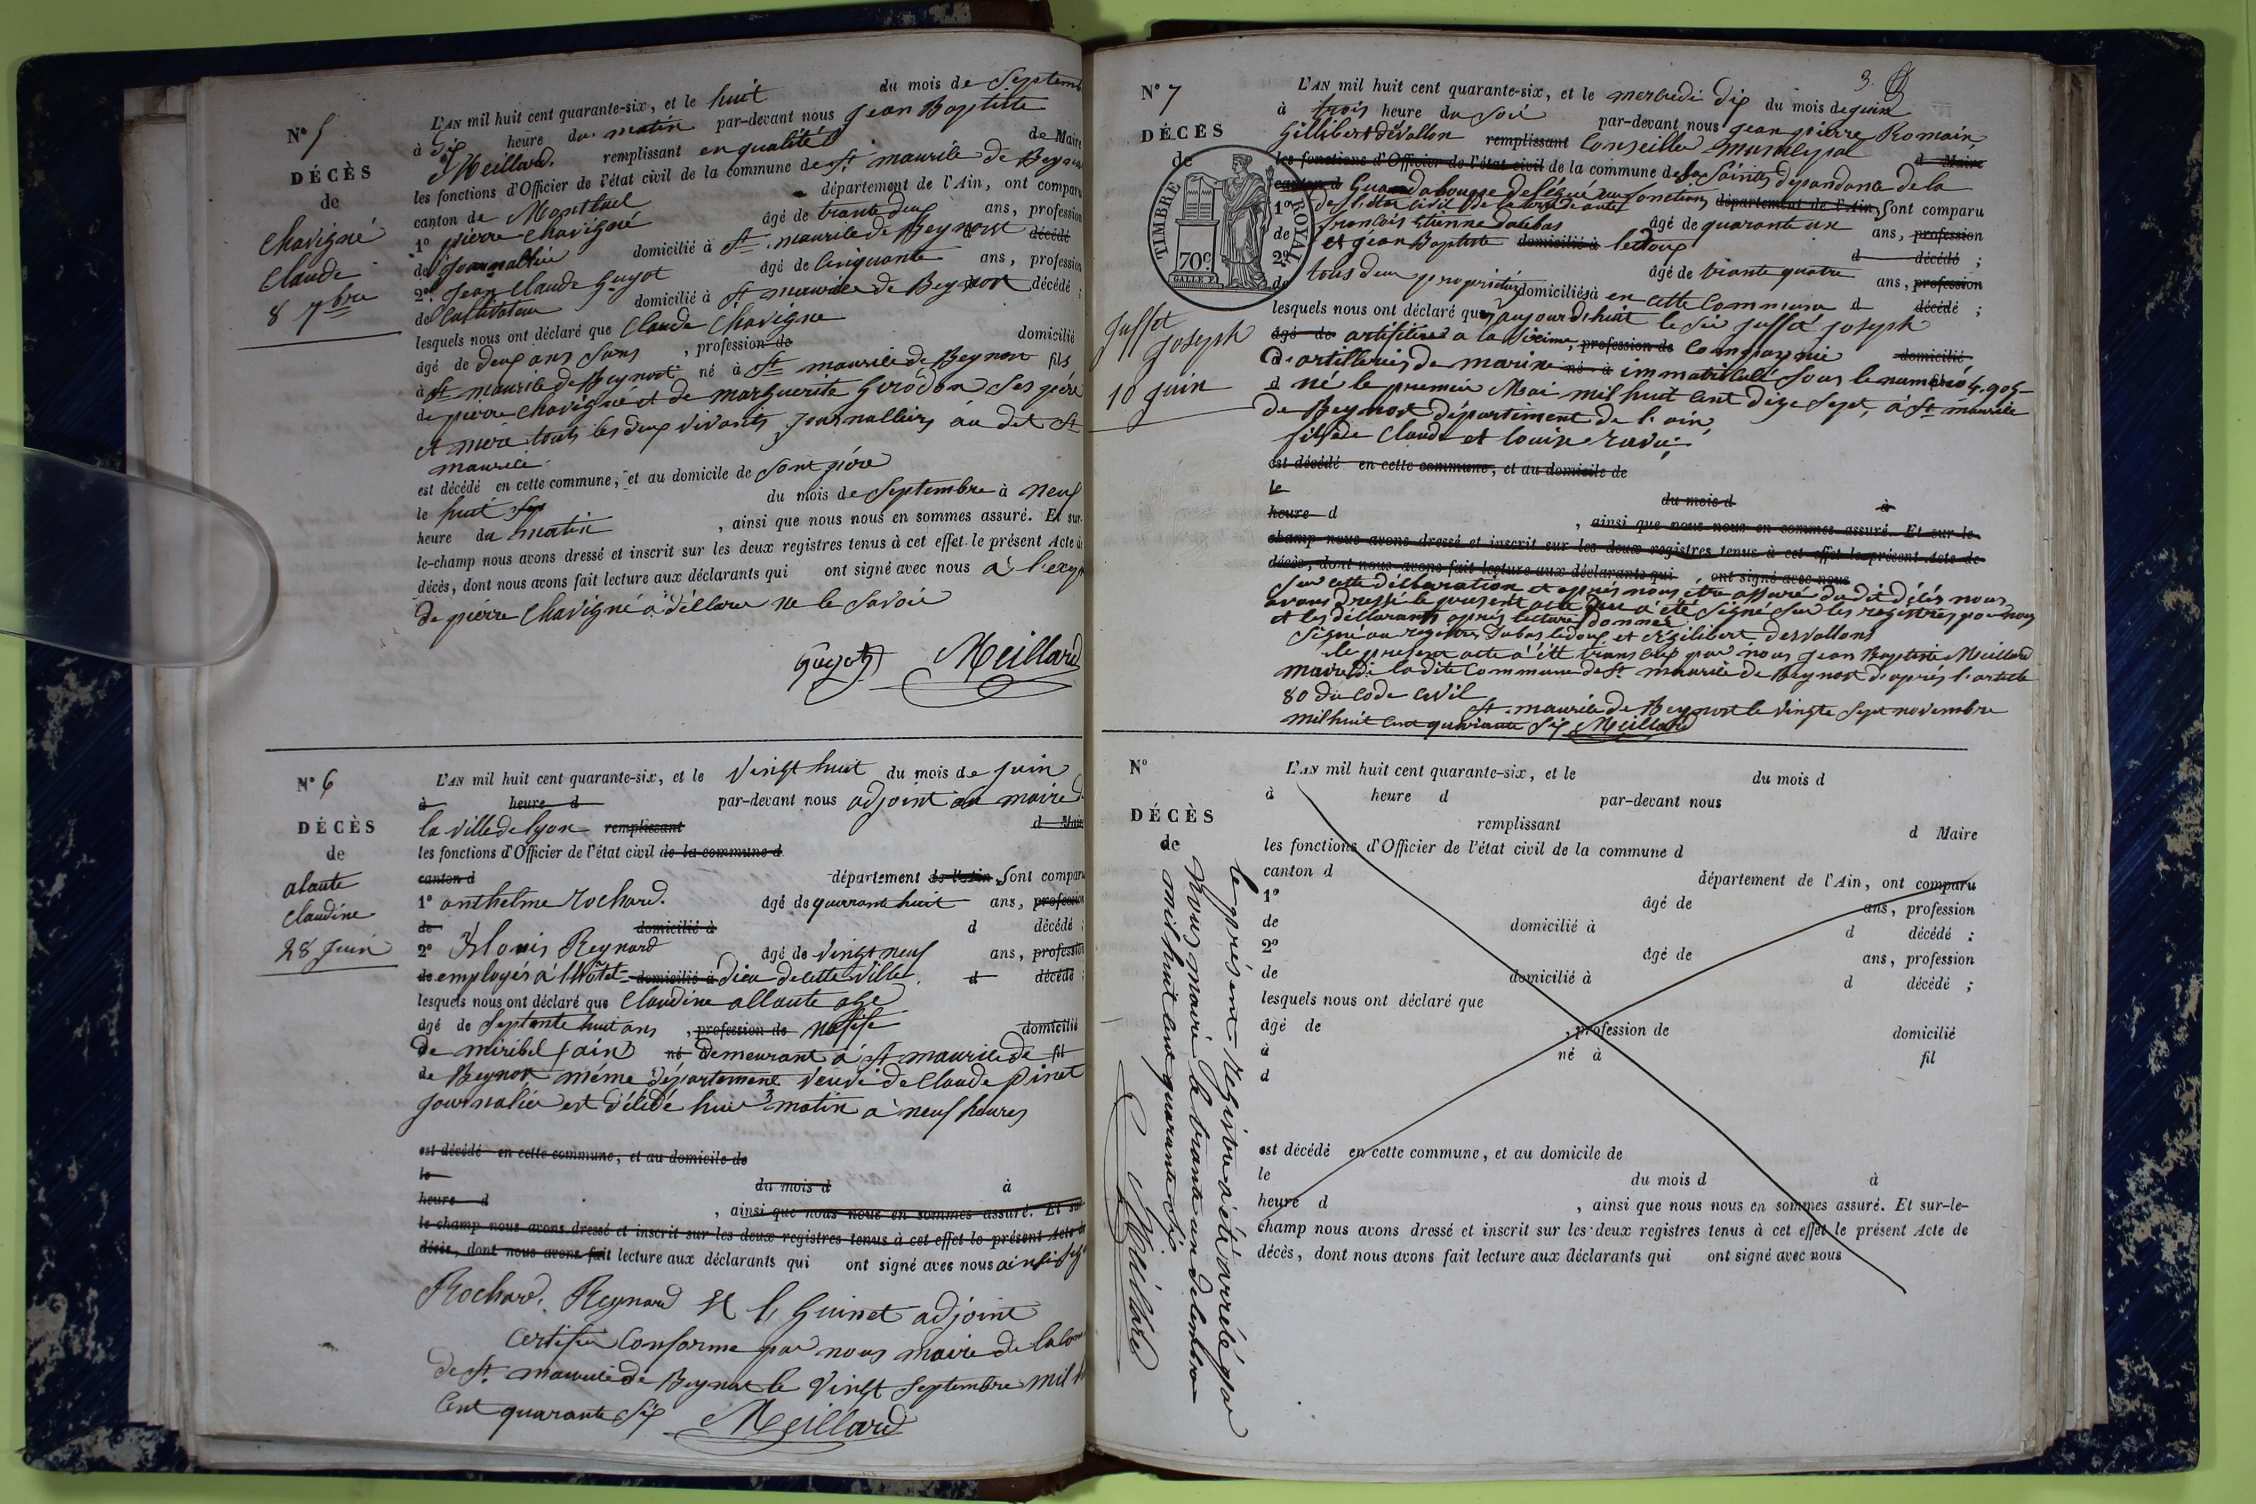 N° 5
DÉCÈS
de
Chavigné
Claude
8 7bre
L'AN mil huit cent quarante-six, et le huit du mois de Septemb
à dix heure du matin par-devant nous Jean Baptiste
Meillard. remplissant en qualité de Maire
les fonctions d'Officier de l'état civil de la commune de St maurice de Beyno
canton de Montluel département de l'Ain, ont comparu
1° pierre Chavigné âgé de trante deux ans, profession
de Journallier domicilié à St maurice de Beynost décédé
2° Jean Claude Guyot âgé de Cinquante ans, profession
de Cultivateur domicilié à St maurice de Beynost décédé ;
lesquels nous ont déclaré que Claude Chavigne
âgé de deux ans sans , profession de domicilié
à St maurice de Beynost né à St maurice de Beynost fils
de pierre Chavigné et de marguerite Girodon ses père
et mere touts les deux vivants Journalliers au dit St
maurice
est décédé en cette commune, et au domicile de sont père
le huit du mois de Septembre à neuf
heure du matin , ainsi que nous nous en sommes assuré. Et sur-
le-champ nous avons dressé et inscrit sur les deux registres tenus à cet effet le présent Acte de
décès, dont nous avons fait lecture aux déclarants qui ont signé avec nous à l'exep
de pierre Chavigné a déllare ne le savoir
Guyot Meillard
N° 6
DÉCÈS
de
alaute
Claudine
28 Juin
L'AN mil huit cent quarante-six, et le Vingt huit du mois de Juin
à heure d par-devant nous adjoint au maire d
la ville de lyon remplissant d Maire
les fonctions d'Officier de l'état civil de la commune d
canton d département de l'Ain, sont comparu
1° anthelme Rochard. âgé de quarrante huit ans, profession
de domicilié à d décédé ;
2° Louis Reynard âgé de Vingt neuf ans, profession
de employés à l'Hôtel domicilié à dieu de cette Ville d décédé ;
lesquels nous ont déclaré que Claudine allaute
âgé de Septante huit ans , profession de domicilié
de miribel (ain) né demeurant à St maurice de fil
de Beynost même département Veuve de Claude pinet
Journalier est décédé hier matin a neuf heures
est décédé en cette commune, et au domicile de
le du mois d à
heure d , ainsi que nous nous en sommes assuré. Et sur
le-champ nous avons dressé et inscrit sur les deux registres tenus à cet effet le présent Acte de
décès, dont nous avons fait lecture aux déclarants qui ont signé avec nous ainsi
Rochard. Reynard Guinet adjoint
Certifié Conforme par nous maire de la
de St maurice de Beynost le Vingt Septembre mil
Cent quarante Six Meillard
3.
N° 7
DÉCÈS
de
TIMBRE ROYAL
70c
Juffet
Joseph
10 Juin
L'AN mil huit cent quarante-six, et le mercredi dix du mois de juin
à trois heure du soir par-devant nous Jean pierre Romain
Gillibert desvallon remplissant Conseiller municipal d Maire
les fonctions d'Officier de l'état civil de la commune de
canton d département de l'Ain, sont comparu
1° françois Etienne Dubas âgé de quarante un ans, profession
de et Jean Baptiste domicilié à ledoux d décédé ;
2° âgé de trante quatre ans, profession
de tous deux propriétaires domiciliés à en cette Commune d décédé ;
lesquels nous ont déclaré que aujourd'huit le sir Juffet joseph
âgé de artifitier a la sixime profession de Compagnie domicilié
d'artillerie de marine né à immatriculé sous le numéro
d né le premier Mai mil huit Cent dize sept, à St maurice
de Beynost département de l'ain,
fils de Claude et louise
est décédé en cette commune, et au domicile de
le du mois d à
heure d , ainsi que nous nous en sommes assuré. Et sur-le-
champ nous avons dressé et inscrit sur les deux registres tenus à cet effet le présent Acte de
décès, dont nous avons fait lecture aux déclarants qui ont signé avec nous
sur cette déllaration et aprés nous étre assuré du dit décès nous
avons dressé le present acte qui a été signé sur les registres par nous
et les déllarants apres lecture donnée
signé au registres Dubas ledoux et Gilibert desvallons
le present acte a été transcrit par nous Jean Baptiste Meillard
maire de la dite Commune de St maurice de Beynost d'aprés l'article
80 du Code Civil
St maurice de Beynost le Vingte Sept novembre
mil huit Cent quarante Six Meillard
N°
DÉCÈS
de
L'AN mil huit cent quarante-six, et le du mois d
à heure d par-devant nous
remplissant d Maire
les fonctions d'Officier de l'état civil de la commune d
canton d département de l'Ain, ont comparu
1° âgé de ans, profession
de domicilié à d décédé ;
2° âgé de ans, profession
de domicilié à d décédé ;
lesquels nous ont déclaré que
âgé de , profession de domicilié
à né à fil
d
est décédé en cette commune, et au domicile de
le du mois d à
heure d , ainsi que nous nous en sommes assuré. Et sur-le-
champ nous avons dressé et inscrit sur les deux registres tenus à cet effet le présent Acte de
décès, dont nous avons fait lecture aux déclarants qui ont signé avec nous
le présent Registre a été arreté par
Nous maire le trante un decembre
mil huit cent quarante Six
Meillard